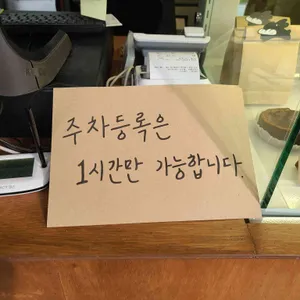 주차등록은
1시간만 가능합니다.